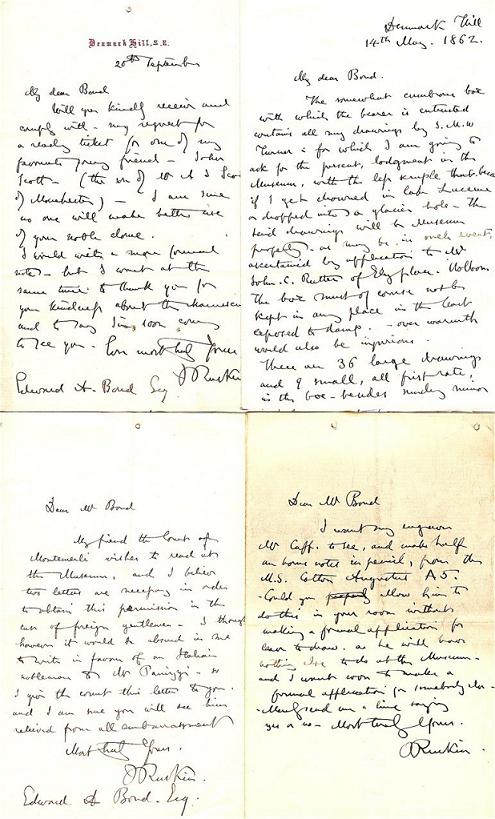 Denmark Hill, S.E.
20th September
My dear Bond
Will you kindly receive and
comply with - my request for
a reading ticket for one of my
favourite young friend - John
Scott - (the son of
of Manchester) - I am sure
no one will make better use
of your noble
I would write a more formal
note - but I want at the
same time to thank you for
your kindness about the
and to say I'm soon coming
to see you. Ever most truly Yours
J Ruskin
Edward A. Bond Esq
Denmark Hill
14th May. 1862.
My dear Bond.
The somewhat cumbrous box
with which the bearer is entrusted
contains all my drawings by J.M.W
Turner: for which I am going to
ask for the present, lodgment in the
Museum, with the less scruple
if I get drowned in Lake Lucerne
or dropped into a glacier hole - the
said drawings will be Museum
property - as may be in such event,
ascertained by application to Mr
John. C. Rutter of Ely place. Holborn.
The box must of course not be
kept in any place in the least
exposed to damp: - over warmth
would also be injurious.
There are 36 large drawings
and 9 small, all first rate,
in the box - besides sundry minor
Dear Mr Bond
My friend the Count of
wishes to read at
the Museum, and I believe
two letters are necessary in order
to obtain this permission in the
case of foreign gentlemen - I thought
however it would be absurd in me
to write in favour of an Italian
nobleman to Mr Panizzi - so
I give the count this letter to you.
and I am sure you will see him
relieved from all embarrassment
Most truly Yours.
J Ruskin.
Edward A Bond. Esq.
Dear Mr Bond
I want my engraver
Mr Cuff. to see, and make half
an hours notes in pencil, from the
M.S. Cotton Augustus A 5.
Could you allow him to
do this in your room without
making a formal application for
leave to draw. as he will have
nothing else to do at the Museum -
and I want soon to make a
formal application for somebody else -
send me a line saying
yes or no - Most truly Yours.
J Ruskin.